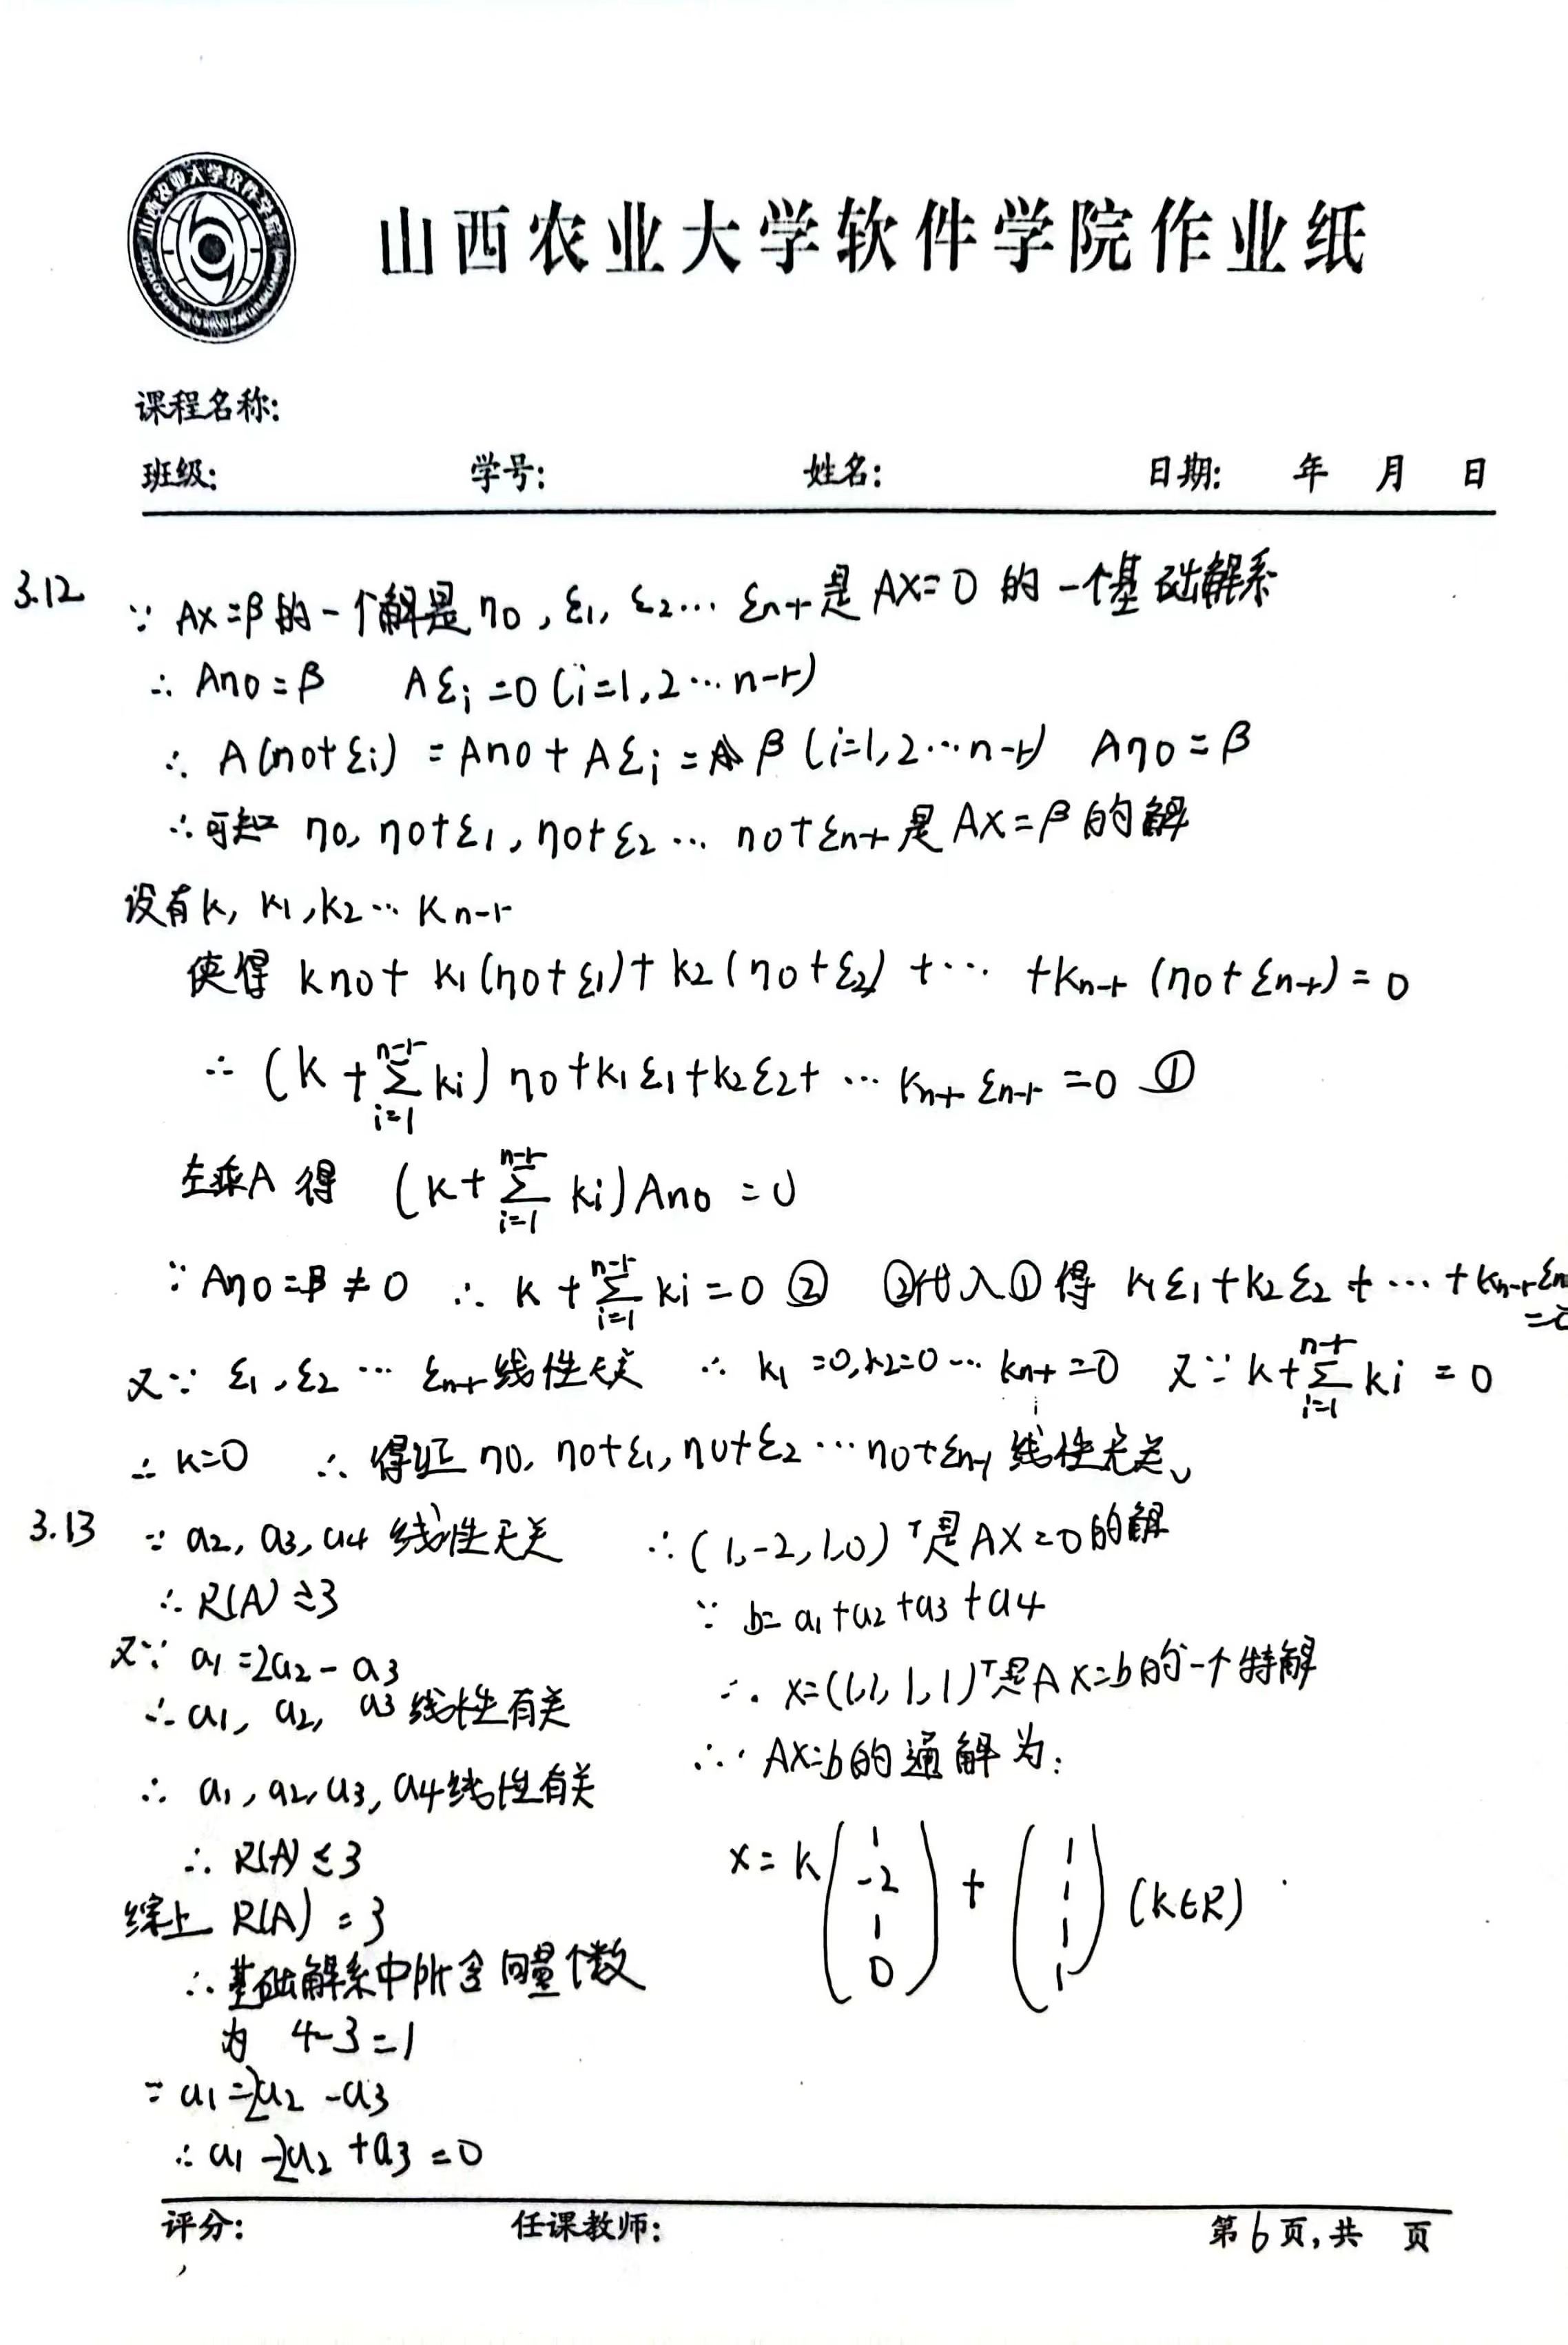 山西农业大学软件学院作业纸
课程名称:
班级: 学号: 姓名: 日期: 年 月 日
3.12 ∵ AX=β的一个解是η0, ε1, ε2… εn-r是AX=0的一个基础解系
∴ Aη0=β Aεi=0(i=1,2…n-r)
∴ A(η0+εi) = Aη0+Aεi = β (i=1,2…n-r) Aη0=β
∴可知 η0, η0+ε1, η0+ε2 … η0+εn-r是AX=β的解
设有k, k1, k2… kn-r
使得 kη0+ k1(η0+ε1)+ k2(η0+ε2) +… +kn-r (η0+εn-r)=0
∴ (k+∑_{i=1}^{n-r} ki) η0+k1ε1+k2ε2+ … kn-r εn-r =0 ①
左乘A得 (k+∑_{i=1}^{n-r} ki)Aη0 =0
∵ Aη0=β≠0 ∴ k+∑_{i=1}^{n-r} ki=0 ② ②代入①得 k1ε1+k2ε2+…+kn-rεn =0
又∵ ε1, ε2 … εn-r线性无关 ∴ k1=0, k2=0… kn-r=0 又∵ k+∑_{i=1}^{n-r} ki =0
∴ k=0 ∴ 得证 η0, η0+ε1, η0+ε2 … η0+εn-r 线性无关
3.13 ∵ a2, a3, a4 线性无关
∴ R(A)≥3
又∵ a1=2a2-a3
∴ a1, a2, a3线性有关
∴ a1, a2, a3, a4线性有关
∴ R(A)≤3
综上 R(A)=3
∴基础解系中所含向量个数
为 4-3=1
∵ a1=2a2-a3
∴ a1-2a2+a3=0
∴ (1,-2,1,0)ᵀ是AX=0的解
∵ b=a1+a2+a3+a4
∴ x=(1,1,1,1)ᵀ是AX=b的一个特解
∴ AX=b的通解为:
x=k(1 -2 1 0) + (1 1 1 1) (k∈R)
评分: 任课教师: 第6页,共 页